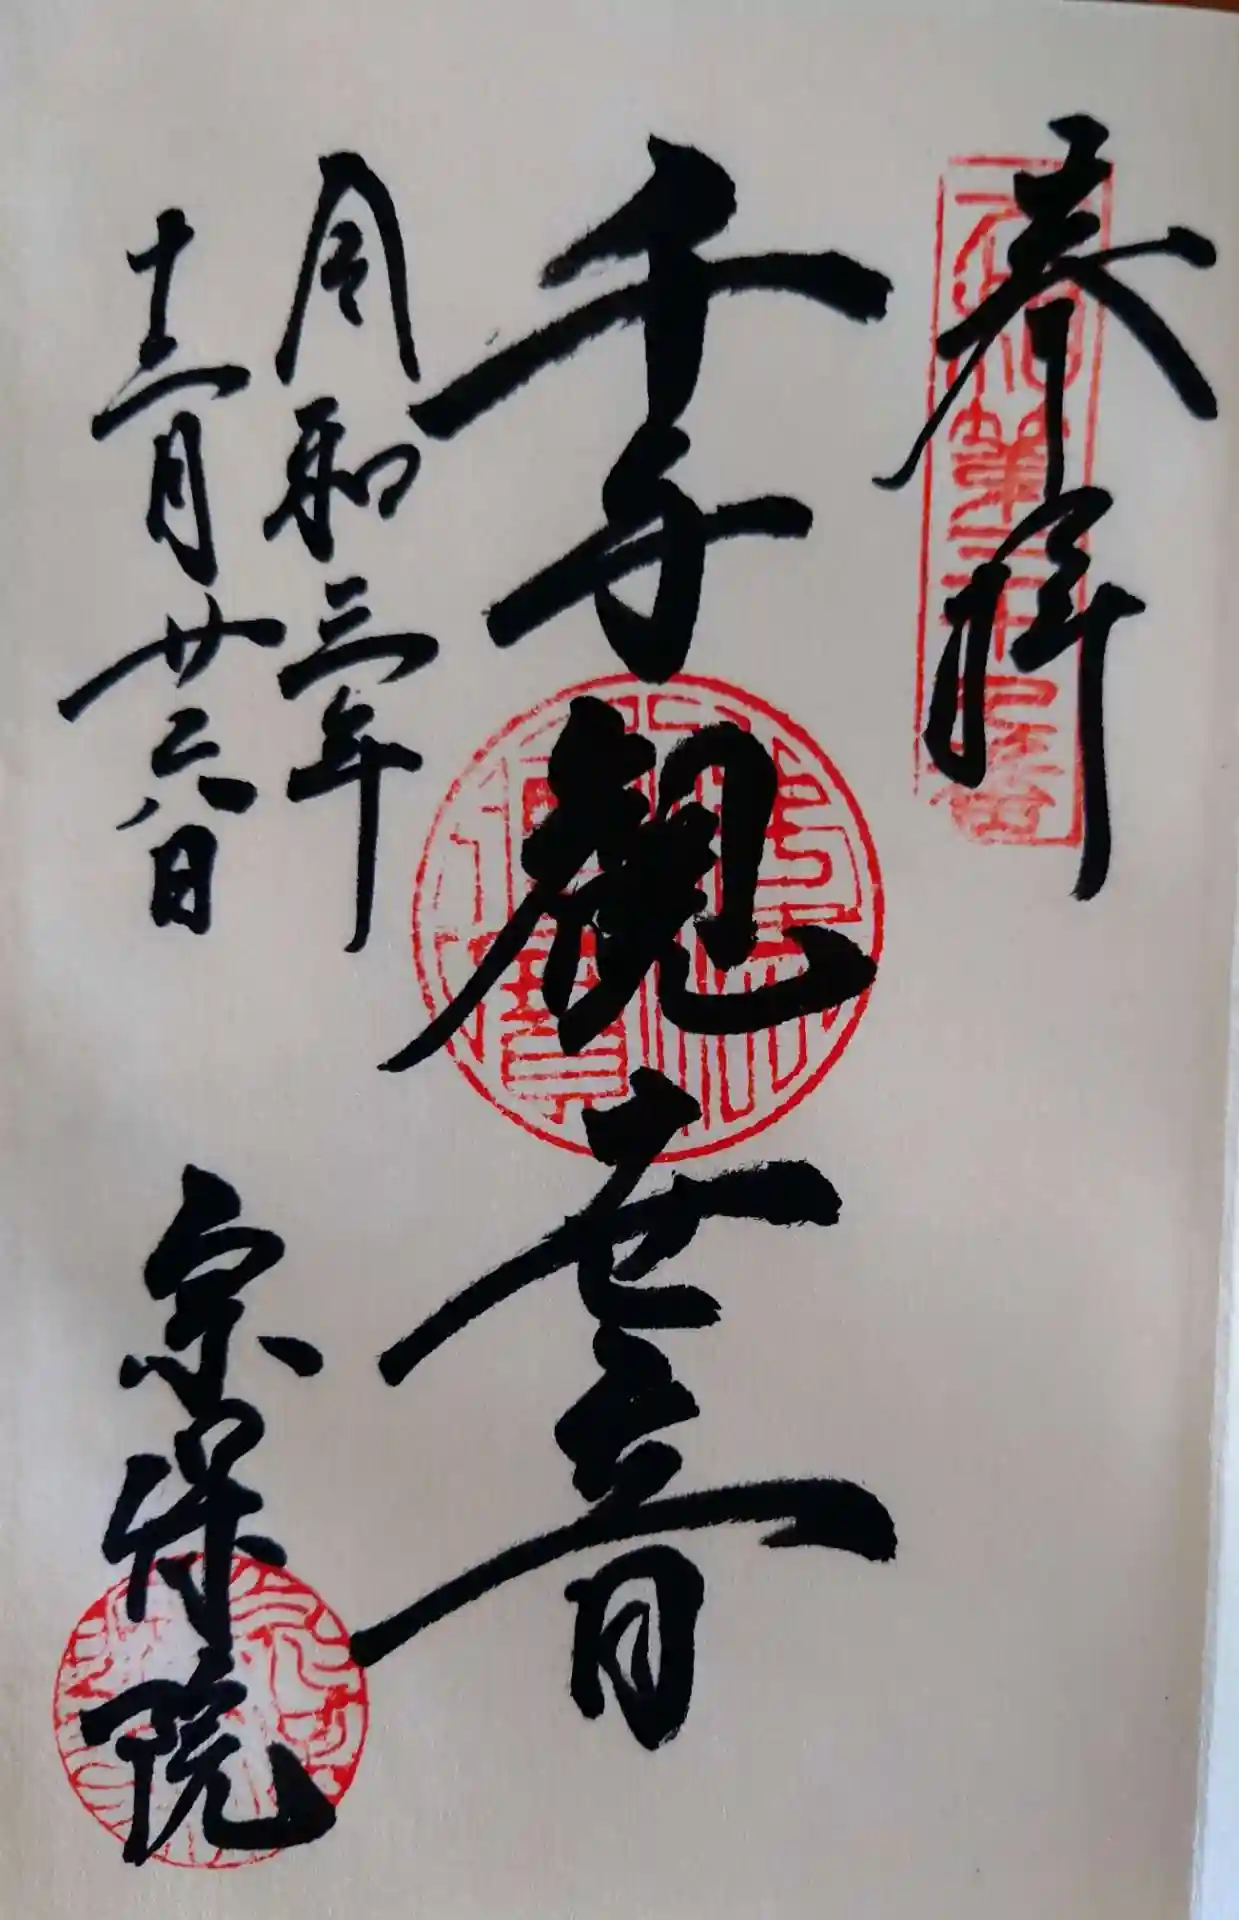 奉拝
千手観世音
令和三年
十二月廿六日
宗保院